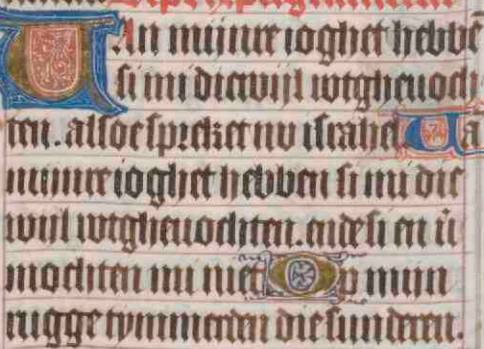 Uan mijnre ioghet hebbē
si mi dicwijl wtgheuoch
ten. alsoe sprket nv israhel Uā
mijnre ioghet hebben si mi dic
wijl wtgheuochten. ende si en ū
mochten mi niet Op mijn
rugge tymmerden die sunderen.